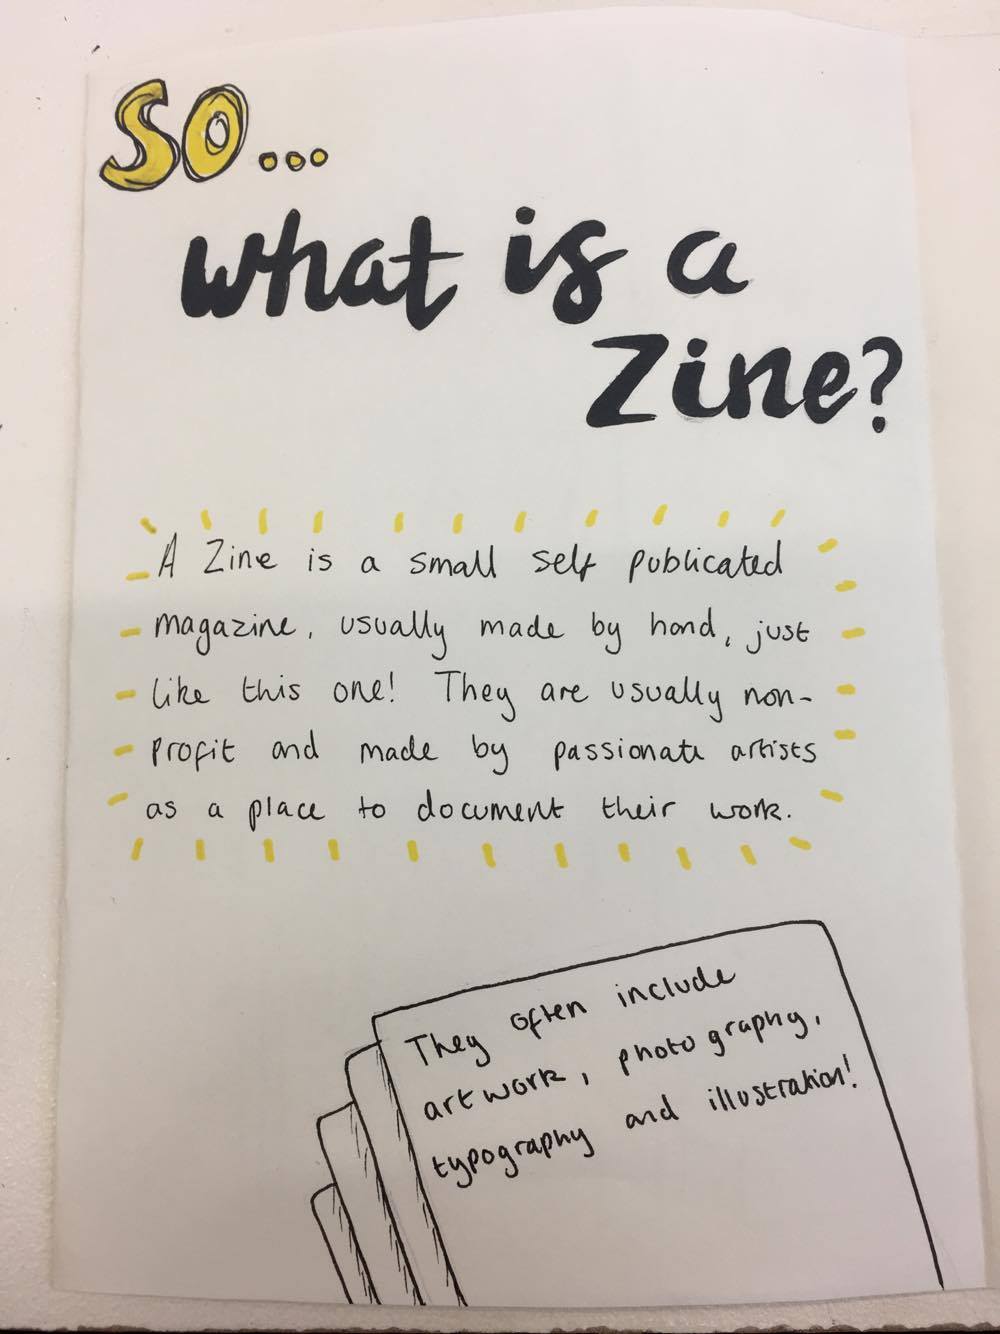 SO...
what is a
Zine?
A Zine is a small self publicated
magazine, usually made by hand, just
like this one! They are usually non-
profit and made by passionate artists
as a place to document their work.
They often include
artwork, photography,
typography and illustration!